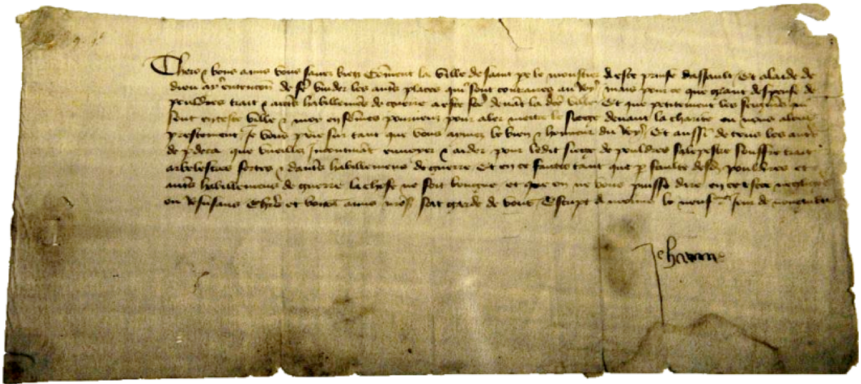 Chers & bons amis vous savez bien comment la ville de saint pere le moustier a este prinse dassault Et a laide de
dieu ay entencion de fe vuider les autres places qui sont contraires au Roy mais pour ce que grant despense de
pouldres trait & autres habillemens de guerre a este fcte devant la dicte ville Et que petitement les seigneurs qui
sont en ceste ville & moy en sommes pourveuz pour aler mectre le siege devant la charite ou nous alons
prestement Je vous prie sur tant que vous aymez le bien & honneur du Roy Et aussi de tous les autres
de p deca que vueillez Incontinant envoyer & aider pour ledit siege de pouldres salepestre souffre trait
arbelestres fortes & dautres habillemens de guerre Et en ce faictes tant que p faulte desd pouldres et
autres habillemens de guerre la chose ne soit longue et que on ne vous puisse dire en ce estre negligens
ou Refusans Chers et bons amis nre sr soit garde de vous Escript a molins le neufme Jour de novembre
Jehanne